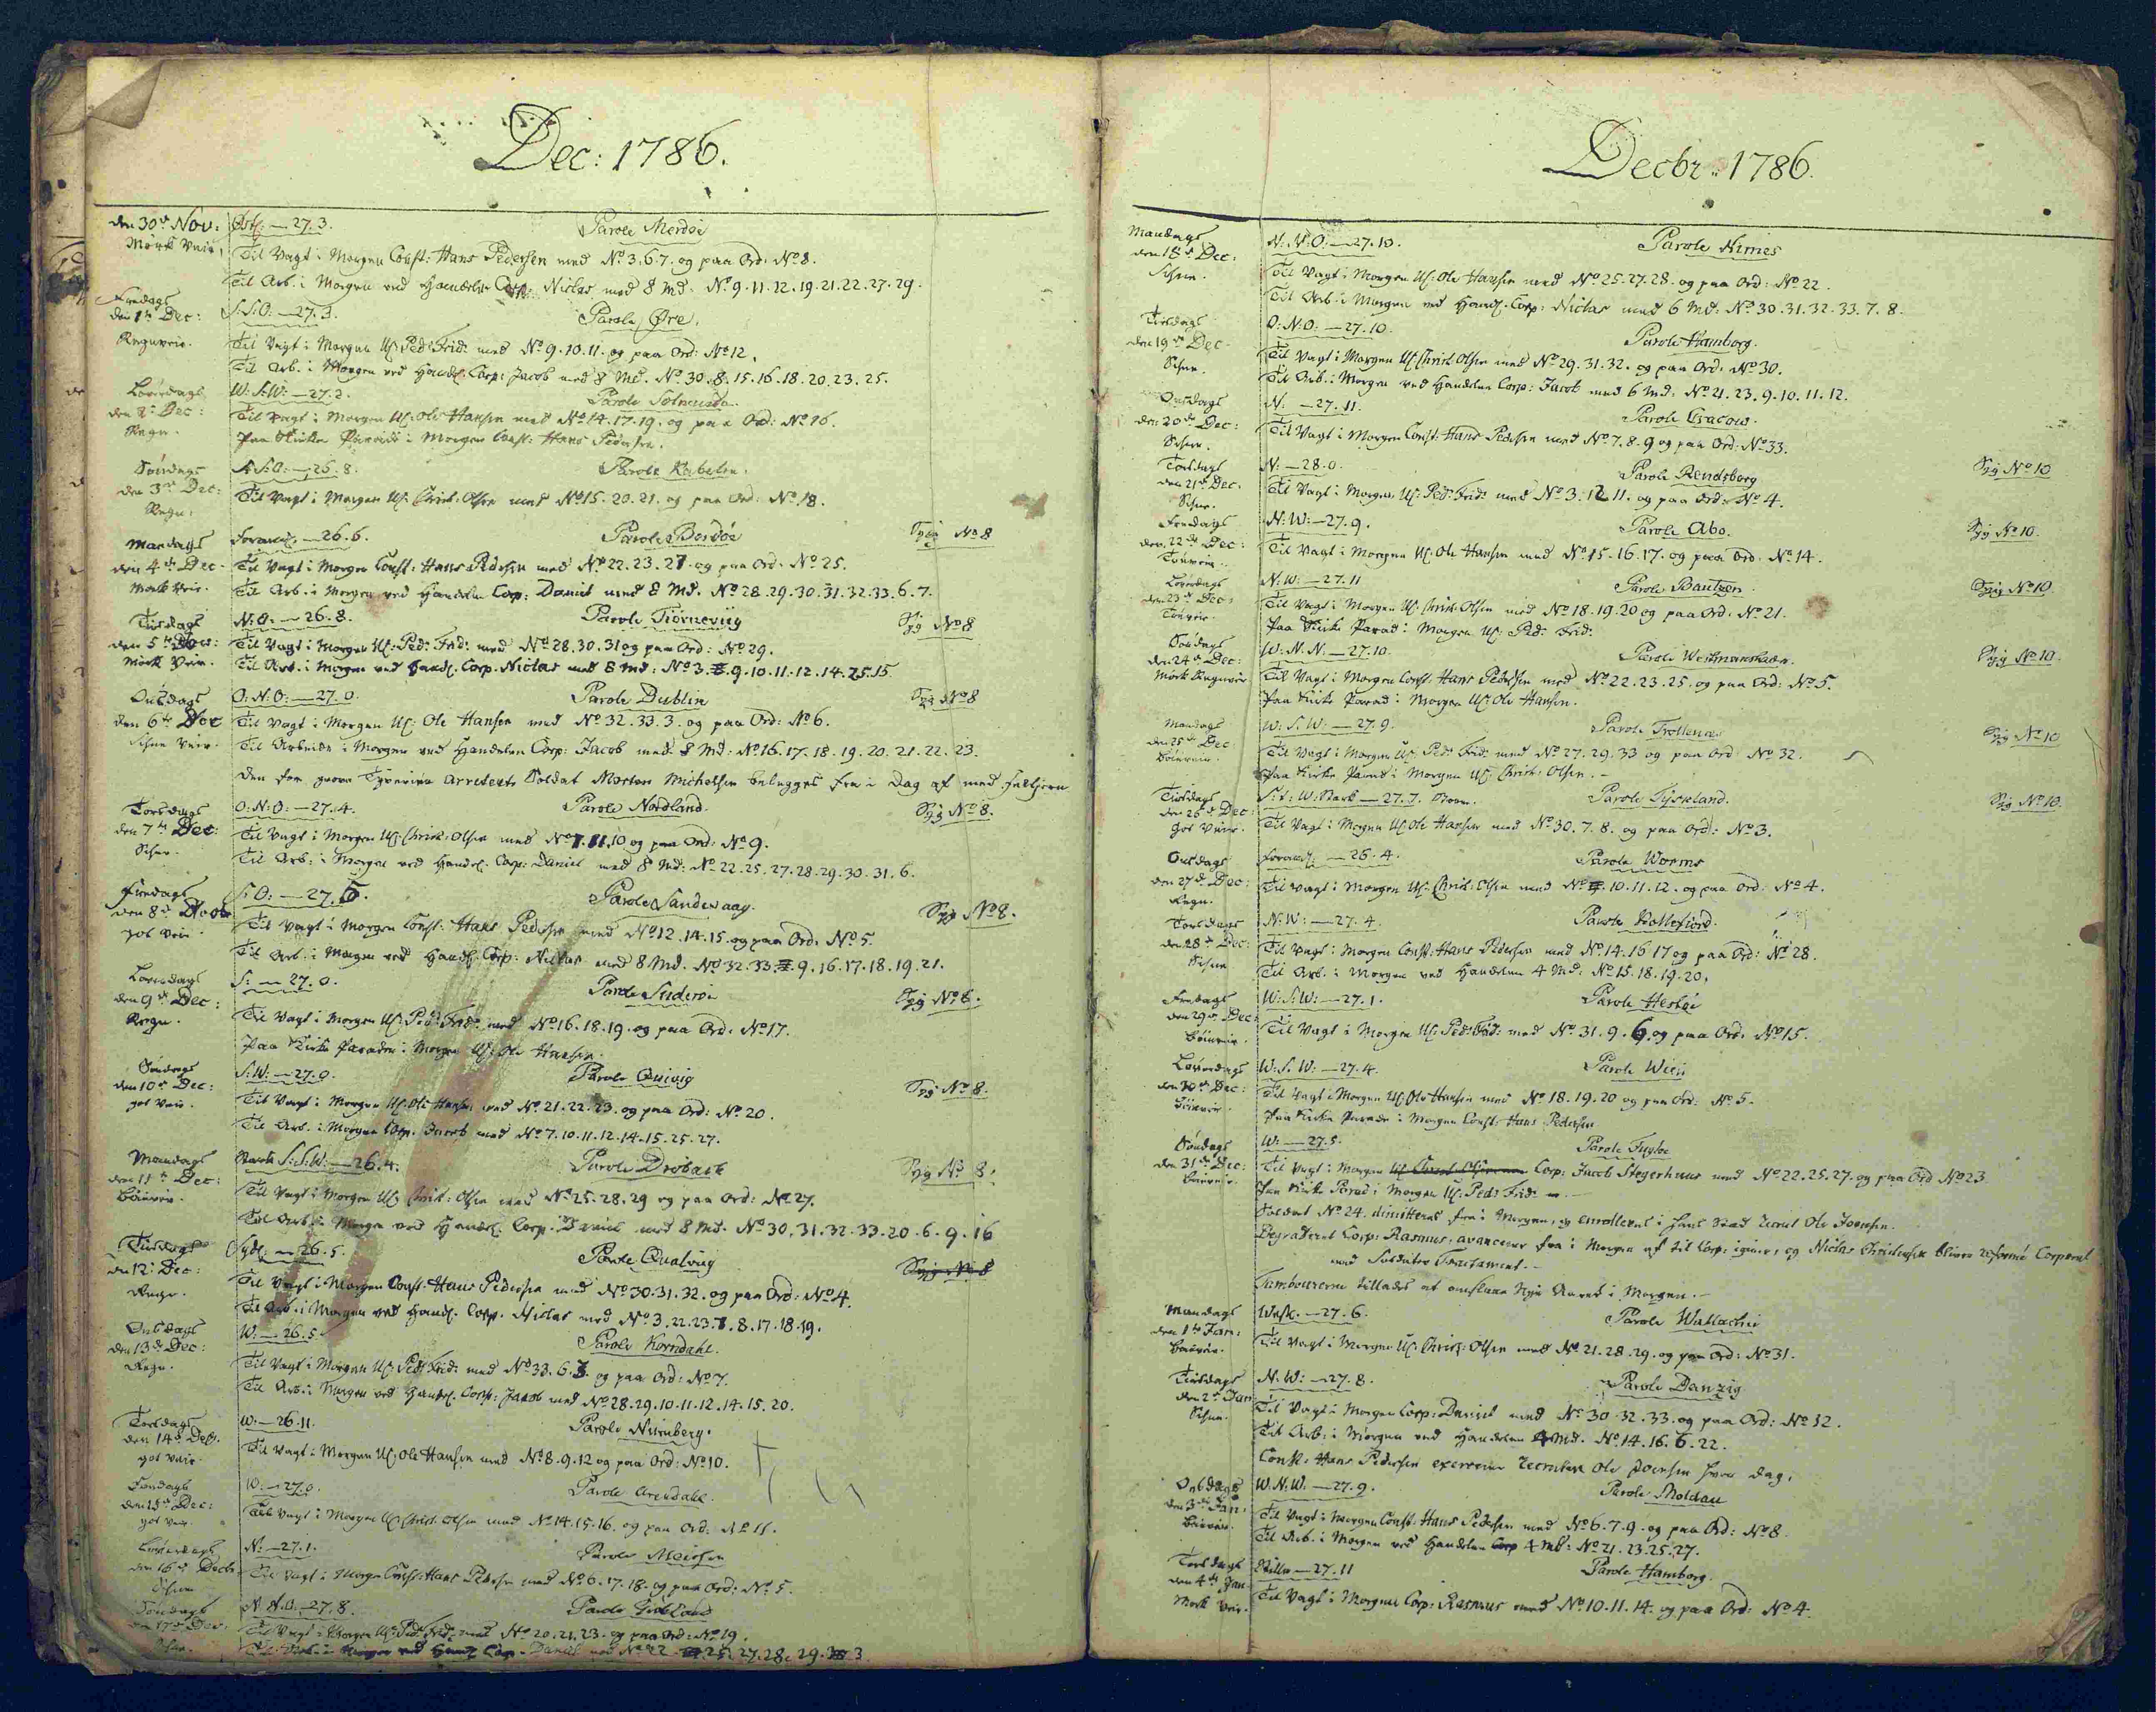 Dec: 1786.
den 30te Nov: Østl: — 27.3. Parole Merdøe
Mörk Veir. Til Vagt i Morgen Const: Hans Pedersen med No 3.6.7. og paa Ord: No 8.
Til Arb. i Morgen ved Handelen Corp: Niclas med 8 Md. No 9.11.12.19.21.22.27.29.
Fredags den 1te Dec: S:S:O: — 27.3. Parole Øre.
Regnveir. Til Vagt i Morgen U: Ped: Frid: med No 9.10.11. og paa Ord: No 12.
Til Arb. i Morgen ved Handl: Corp: Jacob med 8 Md. No 30.8.15.16.18.20.23.25.
Løverdags den 2de Dec: W:S:W: — 27.2. Parole
Regn. Til Vagt i Morgen U: Ole Hansen med No 14.17.19. og paa Ord: No 26.
Paa Kirke Parade i Morgen Const: Hans Pedersen.
Søndags den 3de Dec: S:O: — 26.8. Parole
Regn. Til Vagt i Morgen U: Christ: Olsen med No 15.20.21. og paa Ord: No 18.
Mandags den 4de Dec: — 26.6. Parole Bordøe Syg No 8
Mörk Veir. Til Vagt i Morgen Const: Hans Pedersen med No 22.23.27. og paa Ord: No 25.
Til Arb. i Morgen ved Handelen Corp: Daniel med 8 Md. No 28.29.30.31.32.33.6.7.
Tirsdags den 5te Dec: N:O: — 26.8. Parole Tiörneviig Syg No 8
Mörk Veir. Til Vagt i Morgen U: Ped: Frid: med No 28.30.31 og paa Ord: No 29.
Til Arb. i Morgen ved Handl: Corp. Niclas med 8 Md: No 3.8.9.10.11.12.14.25.15.
Onsdags den 6te Dec O:N:O: — 27.0. Parole Dublin Syg No 8
Til Vagt i Morgen U: Ole Hansen med No 32.33.3. og paa Ord: No 6.
Til Arbeide i Morgen ved Handelen Corp: Jacob med 8 Md: No 16.17.18.19.20.21.22.23.
Den for Tyverier arreterte Soldat Morten Michelsen belægges fra i Dag af med
Torsdags den 7de Dec: O:N:O: — 27.4. Parole Nordland. Syg No 8.
Schne. Til Vagt i Morgen U: Christ: Olsen med No 7.11.10 og paa Ord: No 9.
Til Arb: i Morgen ved Handel: Corp: Daniel med 8 Md: No 22.25.27.28.29.30.31.6.
Fredags den 8de S:O: — 27.5. Parole Sandevaag. Syg No 8.
got Veir. Til Vagt i Morgen Const: Hans Pedersen med No 12.14.15. og paa Ord: No 5.
Til Arb. i Morgen ved Handl: Corp: Niclas med 8 Md. No 32.33.9.16.17.18.19.21.
Løverdags den 9de Dec: S: — 27.0. Parole Suderøe Syg No 8.
Regn. Til Vagt i Morgen U: Ped: Frid: med No 16.18.19. og paa Ord: No 17.
Paa Kirke Paraden i Morgen U: Ole Hansen.
Søndags den 10de Dec: S:W: — 27.0. Parole Qviviig Syg No 8.
got Veir. Til Vagt i Morgen U: Ole Hansen med No 21.22.23. og paa Ord: No 20.
Til Arb. i Morgen Corp. Jacob med No 7.10.11.12.14.15.25.27.
Mandags den 11te Dec: Stark S:S:W: — 26.4. Parole Drøback Syg No 8.
Böiveir. Til Vagt i Morgen U: Christ: Olsen med No 25.28.29 og paa Ord: No 27.
Til Arb. i Morgen ved Handl: Corp. Daniel med 8 Md. No 30.31.32.33.20.6.9.16
Tirsdags den 12te Dec: Sydl: — 26.5. Parole Qualviig Syg No 8
Regn. Til Vagt i Morgen Const: Hans Pedersen med No 30.31.32. og paa Ord: No 4.
Til Arb. i Morgen ved Handl: Corp. Niclas med No 3.22.23.7.8.17.18.19.
Onsdags den 13de Dec: W: — 26.5. Parole Korndahl.
Regn. Til Vagt i Morgen U: Ped: Frid: med No 33.6.3. og paa Ord: No 7.
Til Arb. i Morgen ved Handl: Corp: Jacob med No 28.29.10.11.12.14.15.20.
Torsdags den 14de Dec. W: — 26.11. Parole Nürnberg.
got Veir. Til Vagt i Morgen U: Ole Hansen med No 8.9.12 og paa Ord: No 10.
Fredags den 15de Dec: W: — 27.0. Parole Arendahl.
got Veir. Til Vagt i Morgen U: Christ: Olsen med No 14.15.16. og paa Ord: No 11.
Løverdags den 16de Decbr N: — 27.1. Parole Meissen
Schne Til Vagt i Morgen Const: Hans Pedersen med No 6.17.18. og paa Ord: No 5.
Søndags den 17de Dec: N:N:O: — 27.8. Parole
Schne. Til Vagt i Morgen U: Ped: Frid: med No 20.21.23. og paa Ord: No 19.
Til Arb. i Morgen ved Handl: Corp. Daniel med No 22.25.27.28.29.3.
Decbr: 1786.
Mandags den 18de Dec: N:N:O: — 27.10. Parole Nimes
Schne. Til Vagt i Morgen U: Ole Hansen med No 25.27.28. og paa Ord: No 22.
Til Arb. i Morgen ved Handl: Corp: Niclas med 6 Md: No 30.31.32.33.7.8.
Tirsdags den 19de Dec. O:N:O: — 27.10. Parole Hamborg.
Schne. Til Vagt i Morgen U: Christ: Olsen med No 29.31.32. og paa Ord: No 30.
Til Arb. i Morgen ved Handelen Corp: Jacob med 6 Md: No 21.23.9.10.11.12.
Onsdags den 20de Dec: N: — 27.11. Parole Cracow.
Schne. Til Vagt i Morgen Const: Hans Pedersen med No 7.8.9 og paa Ord: No 33.
Torsdags den 21de Dec. N: — 28.0. Parole Rendsborg Syg No 10
Schne. Til Vagt i Morgen U: Ped: Frid: med No 3.12.11. og paa Ord: No 4.
Fredags den 22de Dec: N:W: — 27.9. Parole Abo. Syg No 10.
Töuveir. Til Vagt i Morgen U: Ole Hansen med No 15.16.17. og paa Ord: No 14.
Løverdags den 23de Dec: N:W: — 27.11 Parole Bautzen Syg No 10
Töuveir. Til Vagt i Morgen U: Christ: Olsen med No 18.19.20 og paa Ord: No 21.
Paa Kirke Parad: i Morgen U: Ped: Frid:
Søndags den 24de Dec: W:N:W: — 27.10. Parole Westmanshavn. Syg No 10.
Mörk Regnveir Til Vagt i Morgen Const: Hans Pedersen med No 22.23.25. og paa Ord: No 5.
Paa Kirke Parad: i Morgen U: Ole Hansen.
Mandags den 25de Dec: W:S:W: — 27.9. Parole Trollenæs Syg No 10
Böiveir. Til Vagt i Morgen U: Ped: Frid: med No 27.29.33 og paa Ord: No 32.
Paa Kirke Parad: i Morgen U: Christ: Olsen.
Tirsdags den 26de Dec: S:t: W: Stark — 27.7. Storm. Parole Tyskland. Syg No 10.
got Veir. Til Vagt i Morgen U: Ole Hansen med No 30.7.8. og paa Ord: No 3.
Onsdags den 27de Dec: — 26.4. Parole Worms
Regn. Til Vagt i Morgen U: Christ: Olsen med No 10.11.12. og paa Ord: No 4.
Torsdags den 28de Dec: N:W: — 27.4. Parole Kollefiord.
Schne Til Vagt i Morgen Const: Hans Pedersen med No 14.16.17 og paa Ord: No 28.
Til Arb. i Morgen ved Handelen 4 Md: No 15.18.19.20.
Fredags den 29de Dec: W:S:W: — 27.1. Parole Hestøe
Böiveir. Til Vagt i Morgen U: Ped: Frid: med No 31.9.6. og paa Ord: No 15.
Løverdags den 30de Dec: W:S:W: — 27.4. Parole Wien
Böiveir. Til Vagt i Morgen U: Ole Hansen med No 18.19.20 og paa Ord: No 5.
Paa Kirke Parade i Morgen Const: Hans Pedersen
Søndags den 31te Dec: W: — 27.5. Parole Fugløe
Böiveir. Til Vagt i Morgen Corp: Jacob Stegerhuus med No 22.25.27. og paa Ord No 23
Paa Kirke Parad: i Morgen U: Ped: Frid:
Soldat No 24. dimitteres fra i Morgen, og enrolleres i hans Stæd Recrut Ole Joensen.
Degraderet Corp: Rasmus, avancerer fra i Morgen af til Corp: igien, og Niclas Christensen bliver reforme Corporal
med Soldater Tractament.
Tambourerne tillades at omslaae Nye Aaret i Morgen.
Mandags den 1te Jan: Westl. — 27.6. Parole Wallachie
Böiveir. Til Vagt i Morgen U: Christ: Olsen med No 21.28.29. og paa Ord: No 31.
Tirsdags den 2de Jan: N:W: — 27.8. Parole Danzig
Schne. Til Vagt i Morgen Corp: Daniel med No 30.32.33. og paa Ord: No 12.
Til Arb: i Morgen ved Handelen 4 Md. No 14.16.6.22.
Const: Hans Pedersen exercerer Recruten Ole Joensen hver Dag.
Onsdags den 3de Jan: W.N.W. — 27.9. Parole Moldau
Böiveir. Til Vagt i Morgen Const: Hans Pedersen med No 6.7.9. og paa Ord: No 8.
Til Arb. i Morgen ved Handelen Corp 4 Md: No 21.23.25.27.
Torsdags den 4de Jan. Stille — 27.11 Parole Hamborg.
Mörk Veir. Til Vagt i Morgen Corp: Rasmus med No 10.11.14. og paa Ord: No 4.